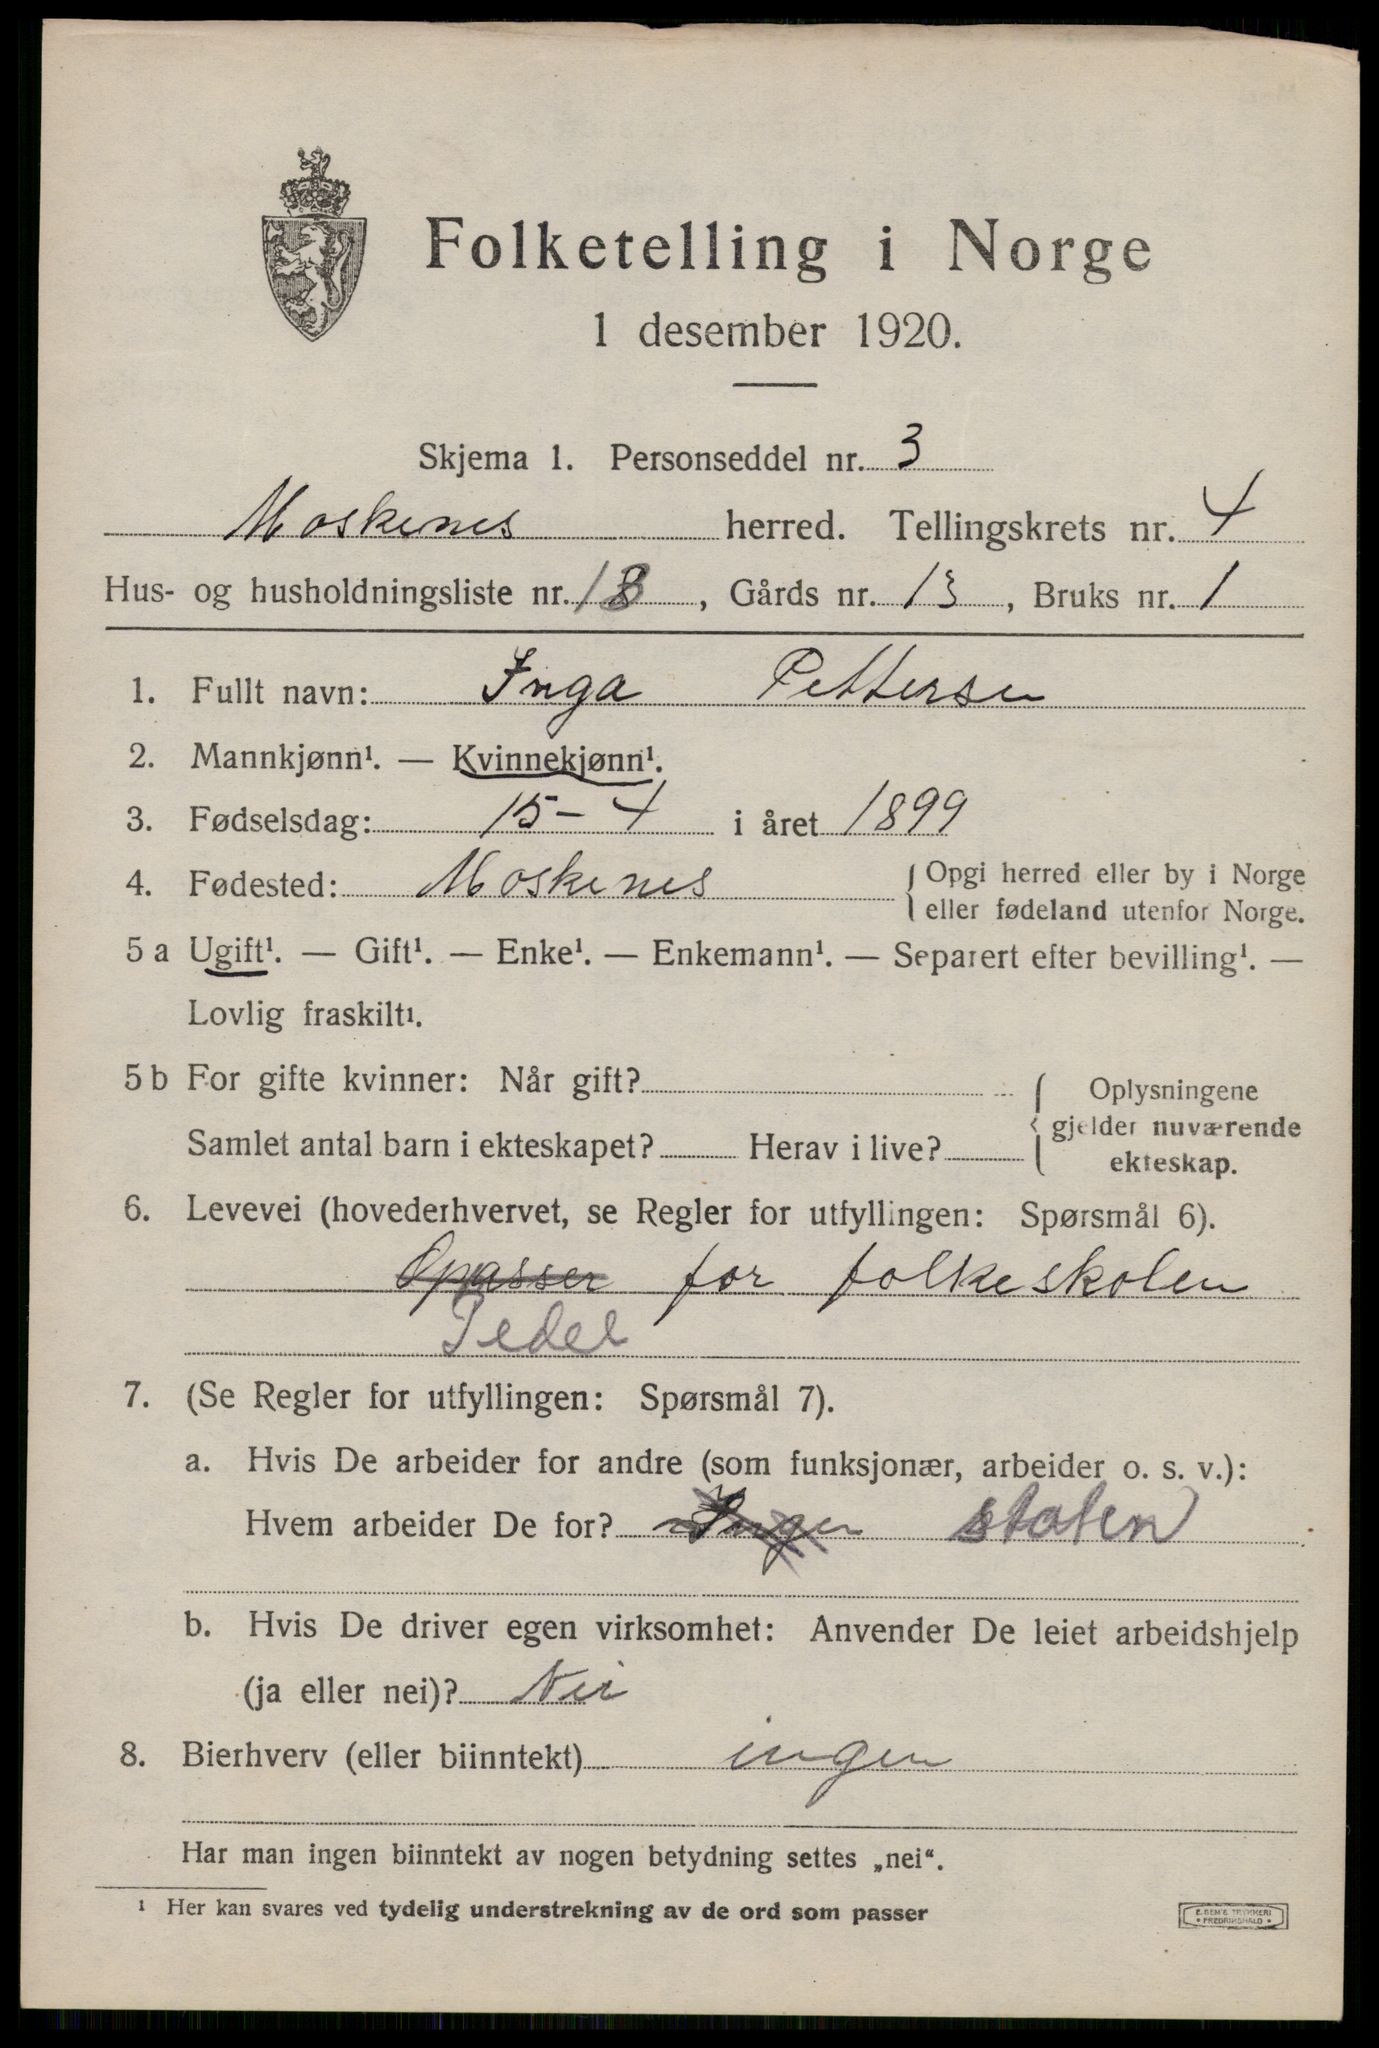 Folketelling i Norge
1 desember 1920.
Skjema 1. Personseddel nr. 3
Moskenes herred. Tellingskrets nr. 4
Hus- og husholdningsliste nr. 18, Gårds nr. 13, Bruks nr. 1
1. Fullt navn: Inga Pettersen
2. Mannkjønn¹. — Kvinnekjønn¹.
3. Fødselsdag: 15-4 i året 1899
4. Fødested: Moskenes { Opgi herred eller by i Norge
eller fødeland utenfor Norge.
5 a Ugift¹. — Gift¹. — Enke¹. — Enkemann¹. — Separert efter bevilling¹. —
Lovlig fraskilt¹.
5 b For gifte kvinner: Når gift? { Oplysningene
gjelder nuværende
Samlet antal barn i ekteskapet? Herav i live?
ekteskap.
6. Levevei (hovederhvervet, se Regler for utfyllingen: Spørsmål 6).
Opasser for folkeskolen
Pedel
7. (Se Regler for utfyllingen: Spørsmål 7).
a. Hvis De arbeider for andre (som funksjonær, arbeider o. s. v.):
Hvem arbeider De for? Ingen staten
b. Hvis De driver egen virksomhet: Anvender De leiet arbeidshjelp
(ja eller nei)? Nei
8. Bierhverv (eller biinntekt) ingen
Har man ingen biinntekt av nogen betydning settes „nei“.
¹ Her kan svares ved tydelig understrekning av de ord som passer
E. SEM'S TRYKKERI
• FREDRIKSHALD •